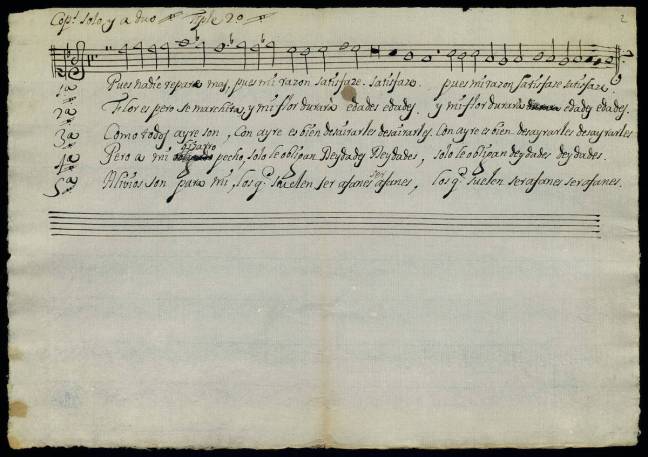 Cop.s solo, y a duo Tiple 2o
2
1a Pues nadie repara mas, pues mi razon satisfaze satisfaze. pues mi razon satisfaze satisfaze.
2a Flor es pero se marchita, y mi flor durara edades edades. y mi flor durara edades edades.
3a Como todos ayre son, con ayre es bien desairarles desairarles. Con ayre es bien desayrarles desayrarles
bizarro
4a Pero a mi pecho, solo le obligan Deydades Deydades, solo le obligan deydades deydades.
ser
5a Alibios son para mi, los q.e suelen ser afanes afanes, los q.e suelen ser afanes ser afanes.